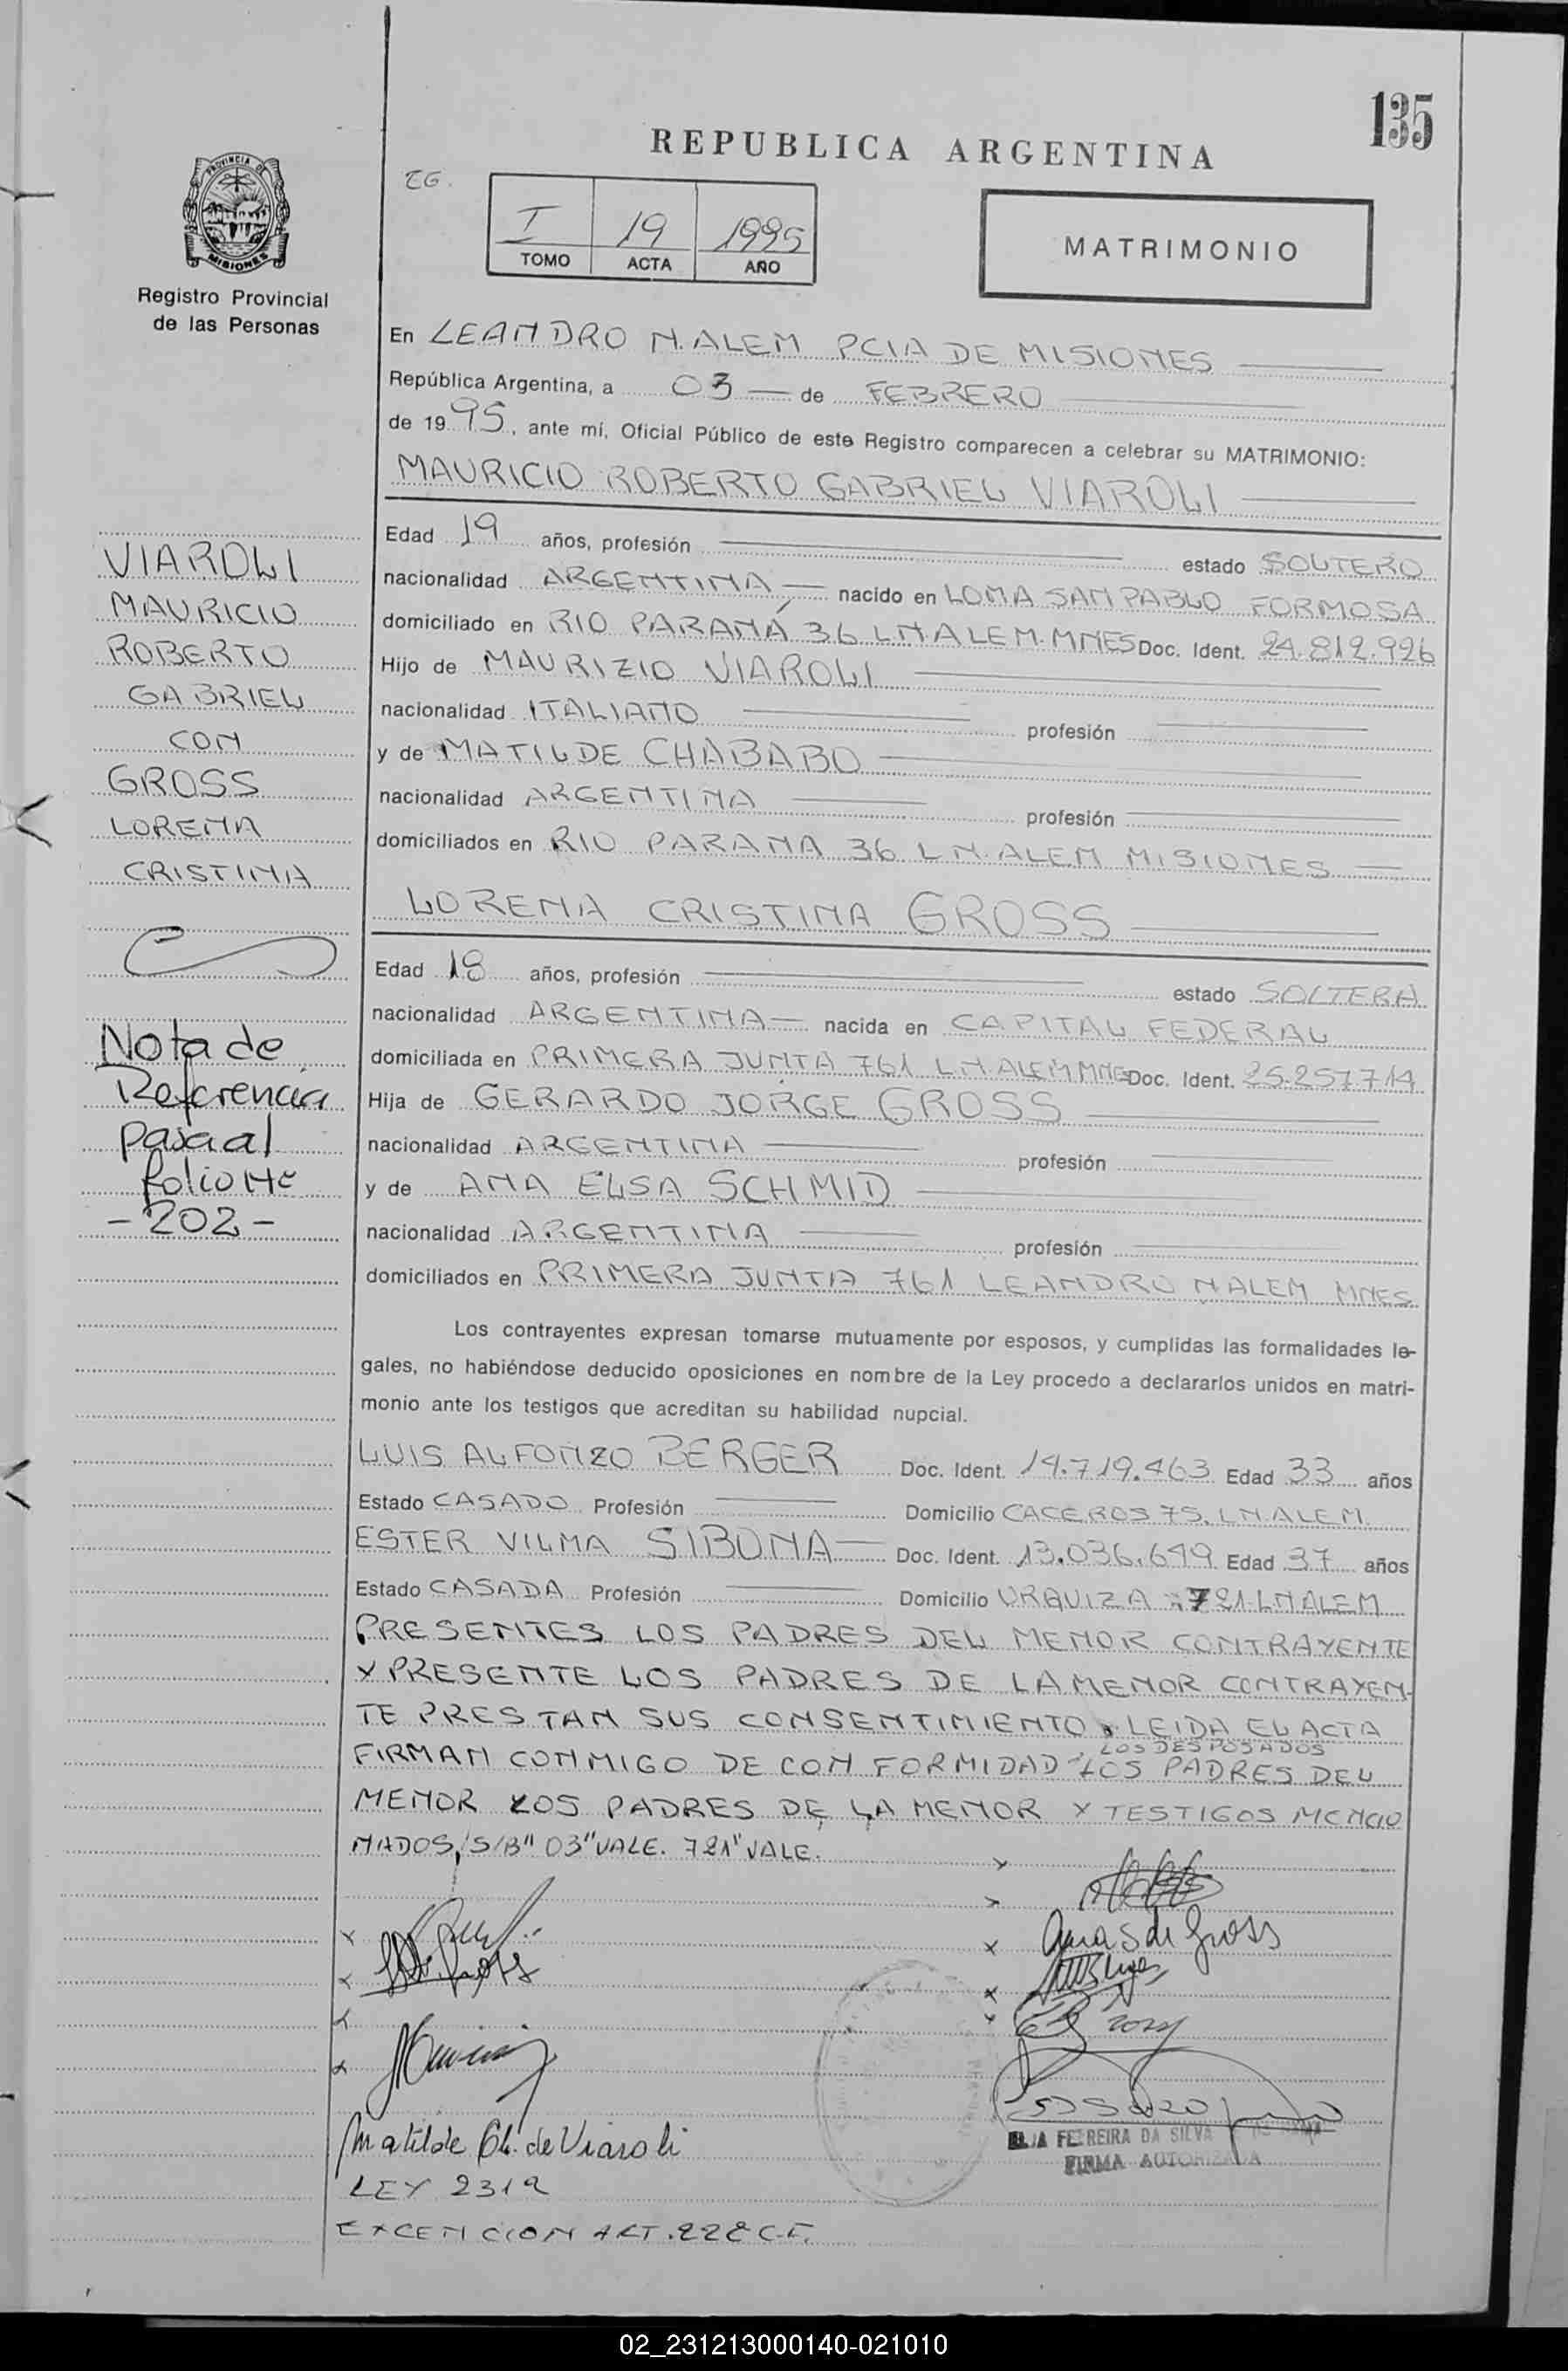 135
REPUBLICA ARGENTINA
PROVINCIA DE
MISIONES
Registro Provincial
de las Personas
I 19 1995
TOMO ACTA AÑO
MATRIMONIO
En LEANDRO N. ALEM PCIA DE MISIONES
República Argentina, a 03 de FEBRERO
de 1995, ante mí, Oficial Público de este Registro comparecen a celebrar su MATRIMONIO:
MAURICIO ROBERTO GABRIEL VIAROLI
Edad 19 años, profesión estado SOLTERO
nacionalidad ARGENTINA nacido en LOMA SAN PABLO FORMOSA
domiciliado en RIO PARANÁ 36 L N ALEM. MNES Doc. Ident. 24.812.926
Hijo de MAURIZIO VIAROLI
nacionalidad ITALIANO profesión
y de MATILDE CHABABO
nacionalidad ARGENTINA profesión
domiciliados en RIO PARANA 36 L N. ALEM MISIONES
LORENA CRISTINA GROSS
Edad 18 años, profesión estado SOLTERA
nacionalidad ARGENTINA nacida en CAPITAL FEDERAL
domiciliada en PRIMERA JUNTA 761 L.N ALEM MNES Doc. Ident. 25.257714
Hija de GERARDO JORGE GROSS
nacionalidad ARGENTINA profesión
y de ANA ELSA SCHMID
nacionalidad ARGENTINA profesión
domiciliados en PRIMERA JUNTA 761 LEANDRO N ALEM MNES
Los contrayentes expresan tomarse mutuamente por esposos, y cumplidas las formalidades le-
gales, no habiéndose deducido oposiciones en nombre de la Ley procedo a declararlos unidos en matri-
monio ante los testigos que acreditan su habilidad nupcial.
LUIS ALFONZO BERGER Doc. Ident. 14.719.463 Edad 33 años
Estado CASADO Profesión Domicilio CACEROS 75. L N. ALEM.
ESTER VILMA SIBONA Doc. Ident. 13.036.649 Edad 37 años
Estado CASADA Profesión Domicilio URQUIZA 721 L N ALEM
PRESENTES LOS PADRES DEL MENOR CONTRAYENTE
Y PRESENTE LOS PADRES DE LA MENOR CONTRAYEN-
TE PRESTAN SUS CONSENTIMIENTO LEIDA EL ACTA
LOS DESPOSADOS
FIRMAN CONMIGO DE CONFORMIDAD LOS PADRES DEL
MENOR LOS PADRES DE LA MENOR Y TESTIGOS MENCIO
NADOS, S/B" 03" VALE. 721" VALE.
Ana S de Gross
Matilde Ch. de Viaroli
ELJA FERREIRA DA SILVA
FIRMA AUTORIZADA
LEY 2319
EXCENCION ART. 222 C.F.
VIAROLI
MAURICIO
ROBERTO
GABRIEL
CON
GROSS
LORENA
CRISTINA
Nota de
Referencia
pasa al
folio Nº
- 202 -
02_231213000140-021010